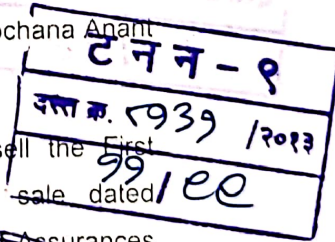 ochana Anant
ट न न - ९
दस्त क्र. /२०१३
sell the First
११/९९
sale dated
Assurances